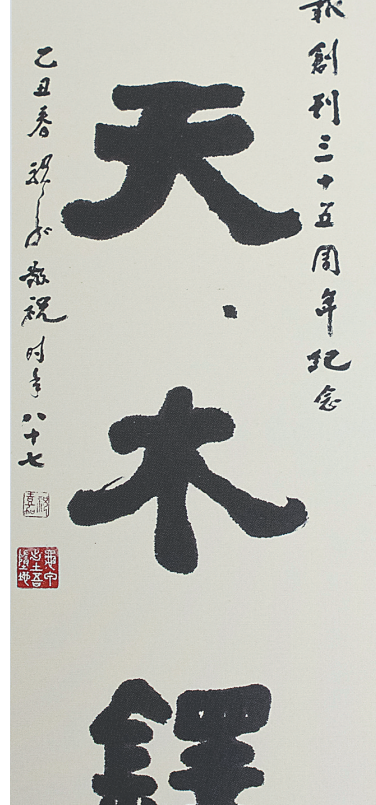 報創刊三十五周年紀念
天 木鐸
乙丑春 敬祝 时年八十七